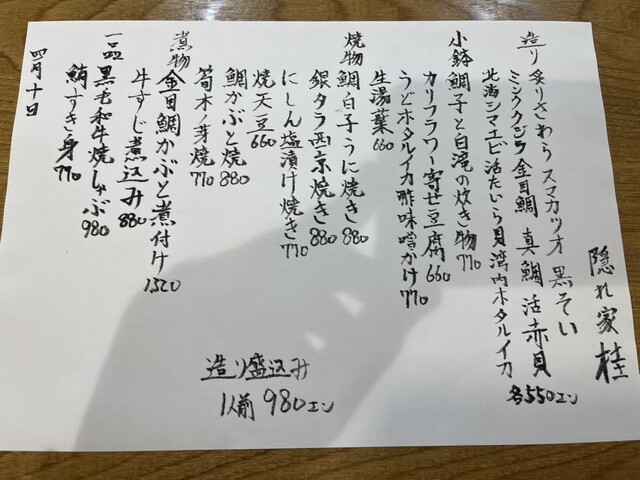 隠れ家 桂
造り 炙りさわら スマカツオ 黒そい
ミンククジラ 金目鯛 真鯛 活赤貝
北海シマエビ 活たいら貝 湾内ホタルイカ
各550エン
小鉢 鯛子と白滝の炊き物 770
カリフラワー寄せ豆腐 660
うどホタルイカ酢味噌かけ 770
生湯葉 660
焼物 鯛白子うに焼き 880
銀タラ西京焼き 880
にしん塩漬け焼き 770
焼天豆 660
鯛かぶと焼 880
筍木ノ芽焼 770
煮物 金目鯛かぶと煮付け 1,520
牛すじ煮込み 880
一品 黒毛和牛焼しゃぶ 980
鮪すき身 770
四月十日
造り盛込み
1人前 980エン